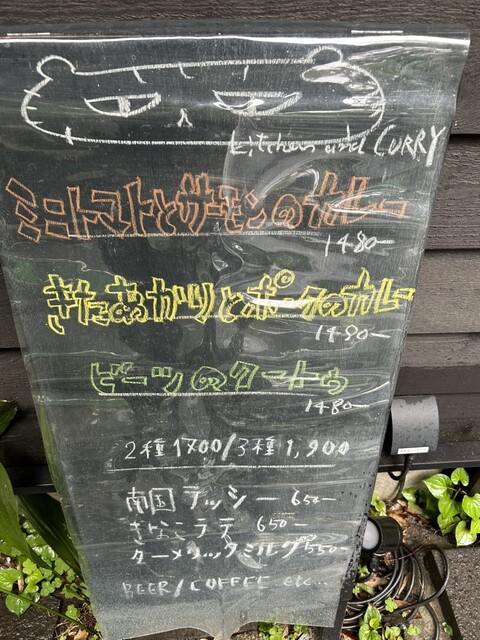 Kitchen and CURRY
ミニトマトとサーモンのカレー
1480-
きたあかりとポークのカレー
1480-
ビーツのクートゥ
1480-
2種1700/3種1,900
南国ラッシー 650-
きなこラテ 650-
ターメリックミルク 550-
BEER/COFFEE etc...